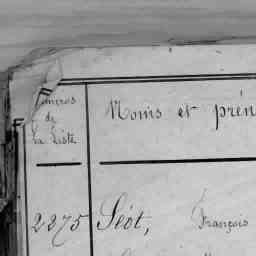 Numéros
de
la Liste
Noms et prén
2275 Séot, François